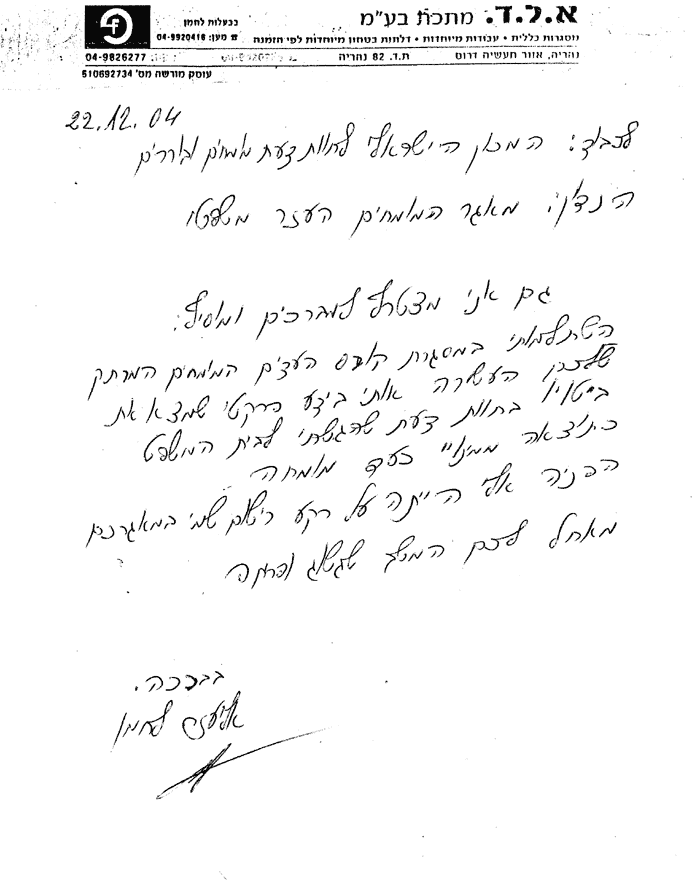 א.ל.ד. מתכת בע"מ
בבעלות לחמן
מסגרות כללית • עבודות מיוחדות • דלתות בטחון מיוחדות לפי הזמנה
☎ מען: 04-9920416
נהריה, אזור תעשיה דרום ת.ד. 82 נהריה 04-9826277
עוסק מורשה מס' 510692734
22.12.04
לכבוד: המכון הישראלי לחוות דעת מומחים ובוררים
הנדון: מאגר המומחים העזר משפטי
גם אני מצטרף למברכים ומוסיף:
השתלמותי במסגרת קורס העדים המומחים המרתק
שלכם העשירה אותי בידע פרקטי שמצא את
ביטויו בחוות דעת שהגשתי לבית המשפט
כתוצאה ממינויי כעד מומחה
הפניה אלי הייתה על רקע רישום שמי במאגרכם
מאחל לכם המשך שגשוג ופריחה
בברכה.
אליעזר לחמן